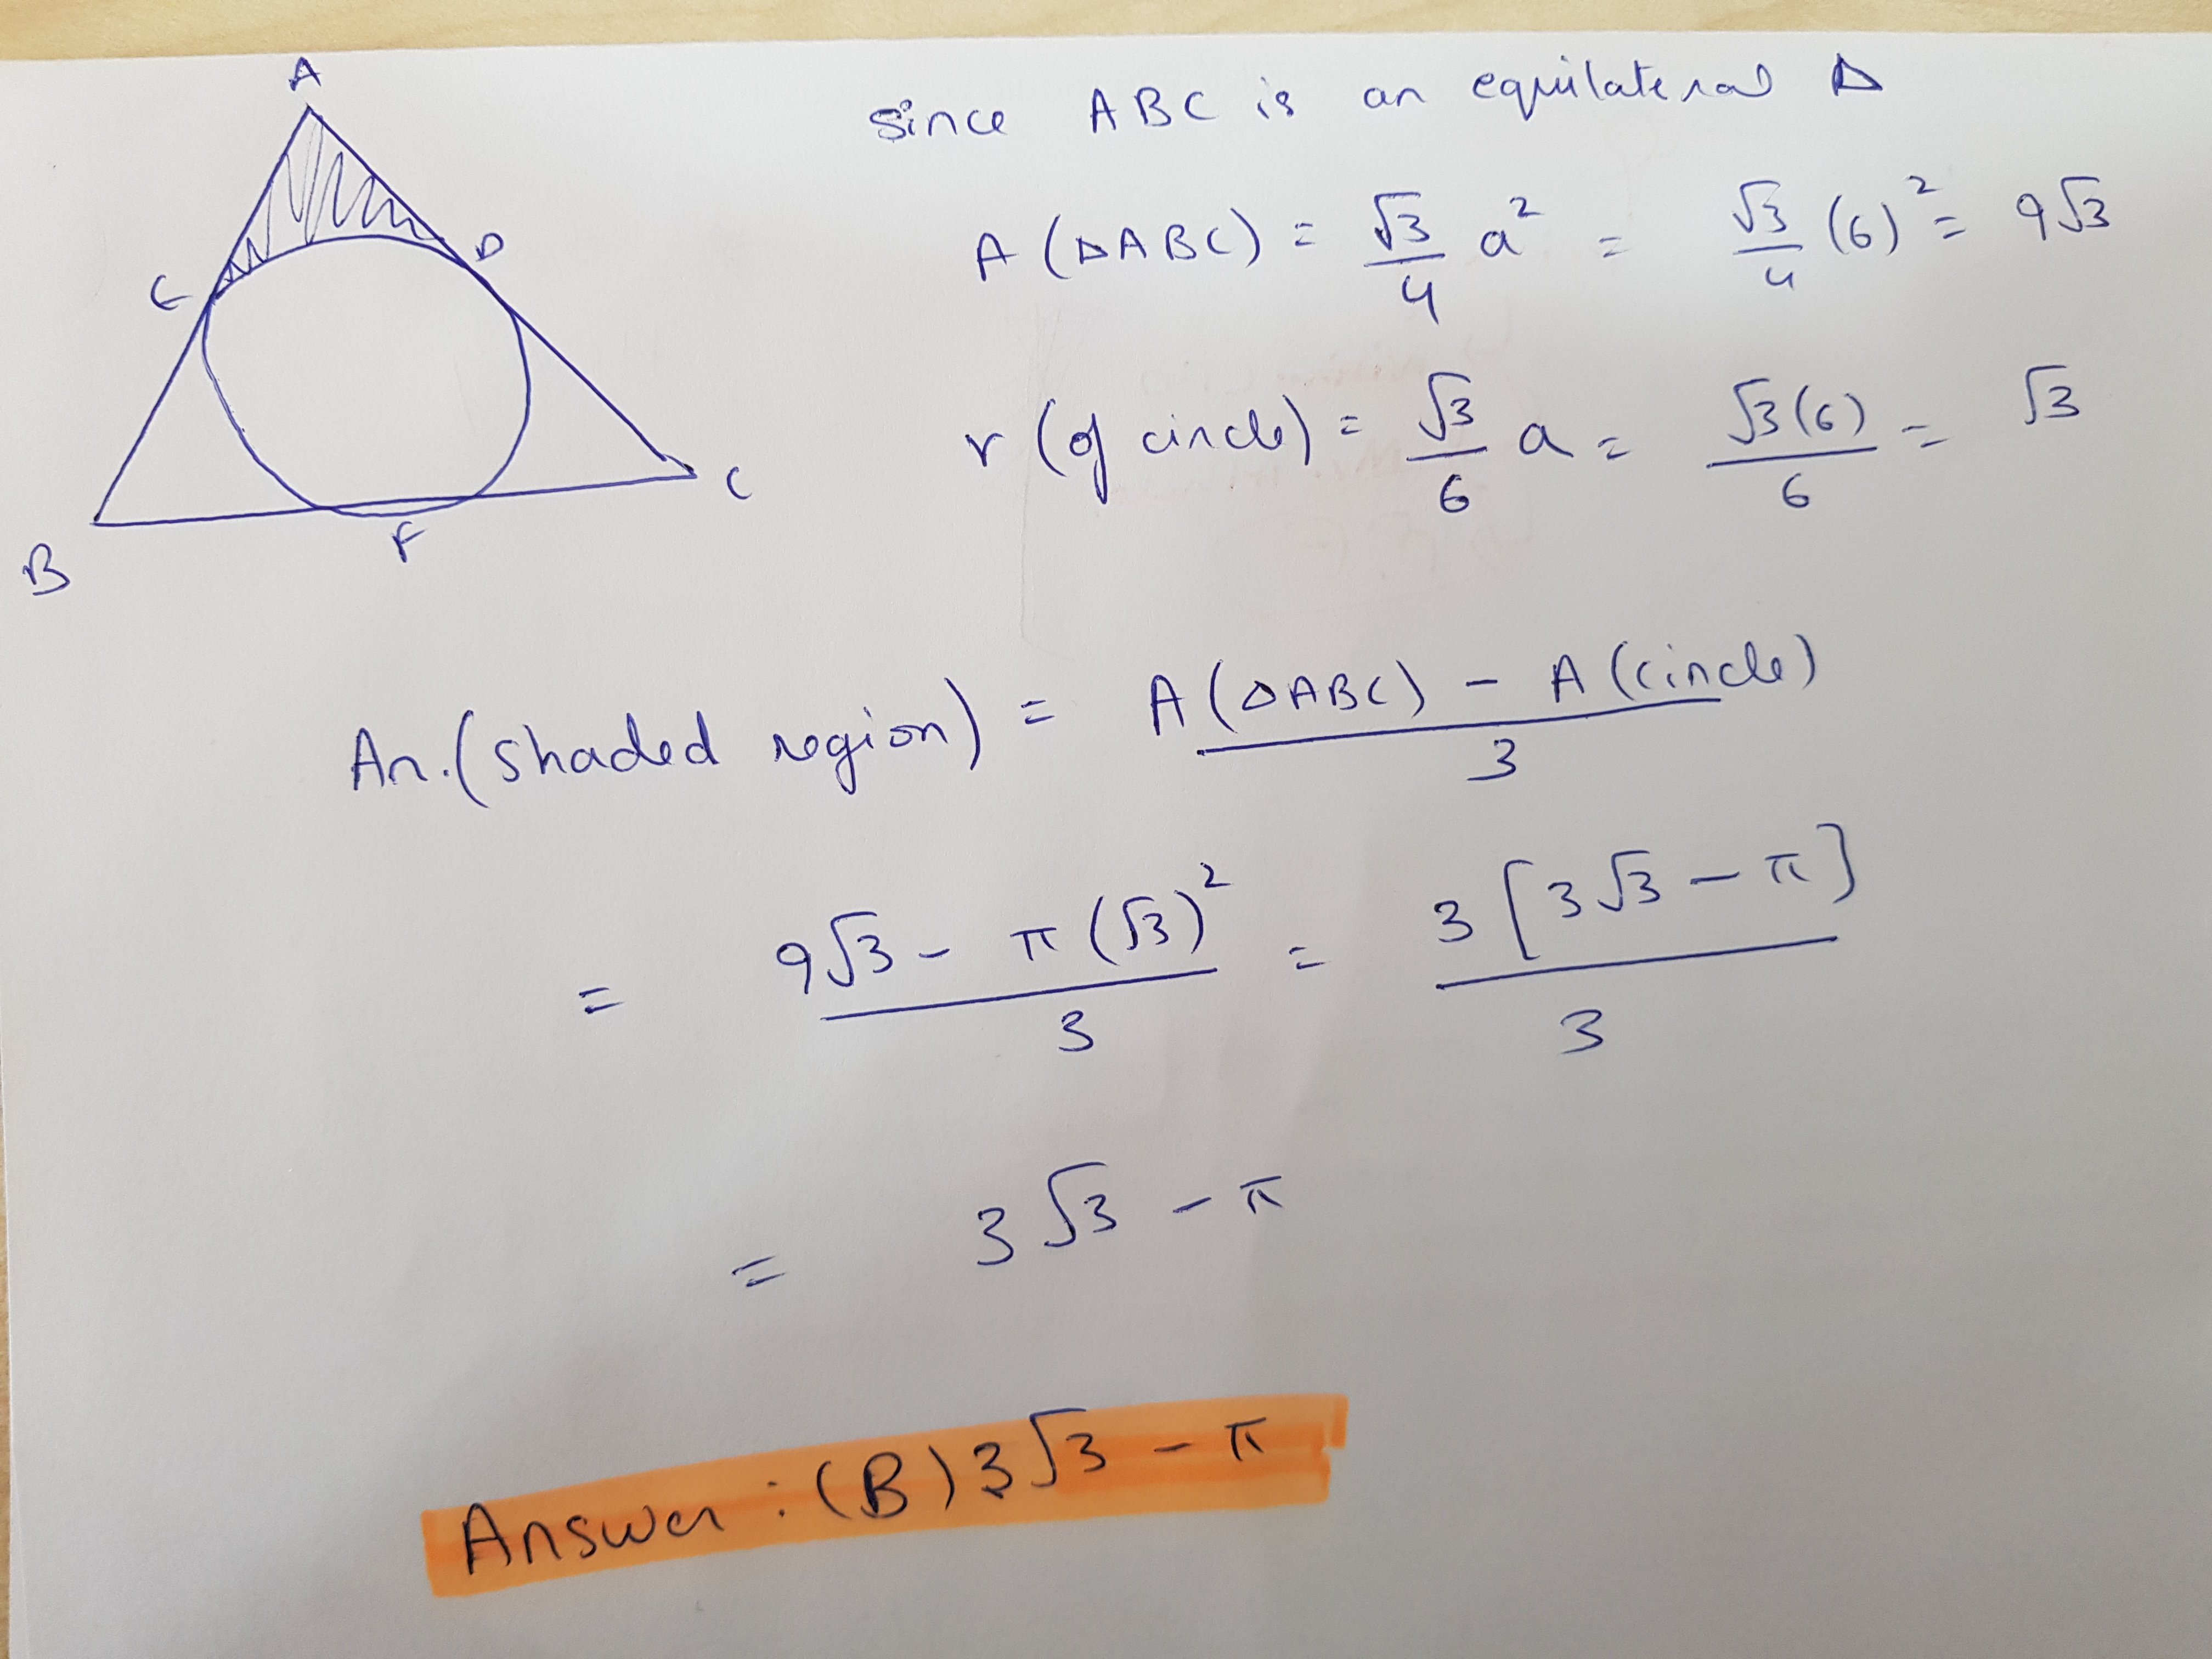 A
E
D
B
F
C
since ABC is an equilateral Δ
A (ΔABC) = √3/4 a² = √3/4 (6)² = 9√3
r (of circle) = √3/6 a = √3(6)/6 = √3
Ar. (shaded region) = A(ΔABC) - A(circle)/3
= 9√3 - π(√3)²/3 = 3[3√3 - π]/3
= 3√3 - π
Answer : (B) 3√3 - π